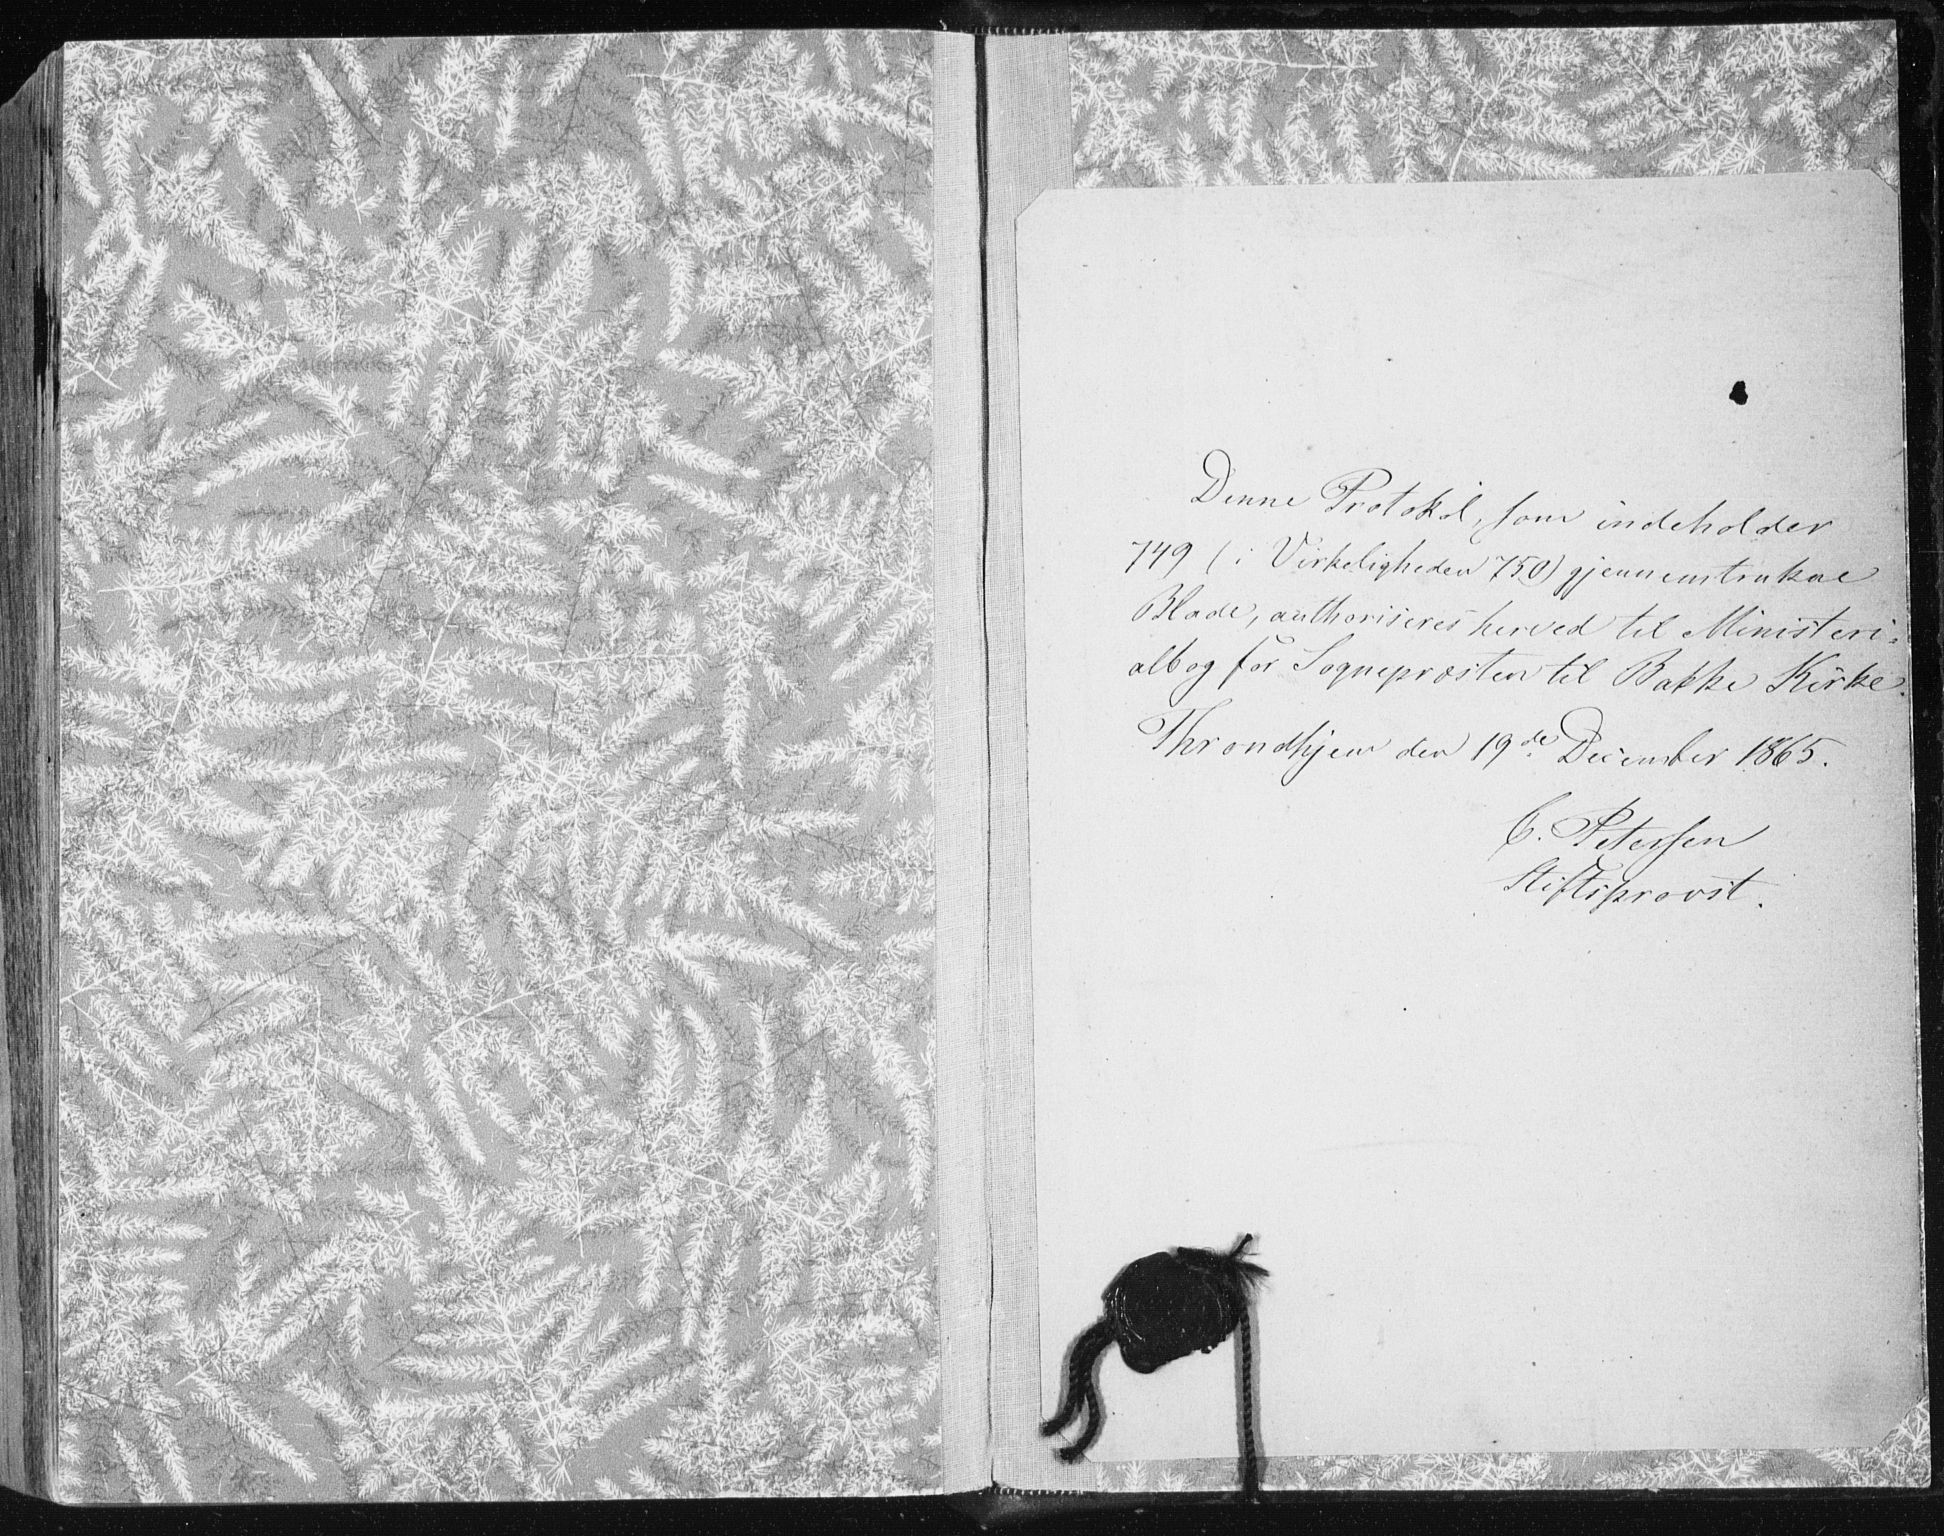 Denne Protokol, som indeholder
749 (i Virkeligheden 750) gjennemtrukne
Blade, authoriseres herved til Ministeri-
albog for Sognepræsten til Bakke Kirke.
Throndhjem den 19de December 1865.
C. Petersen
Stiftsprovst.